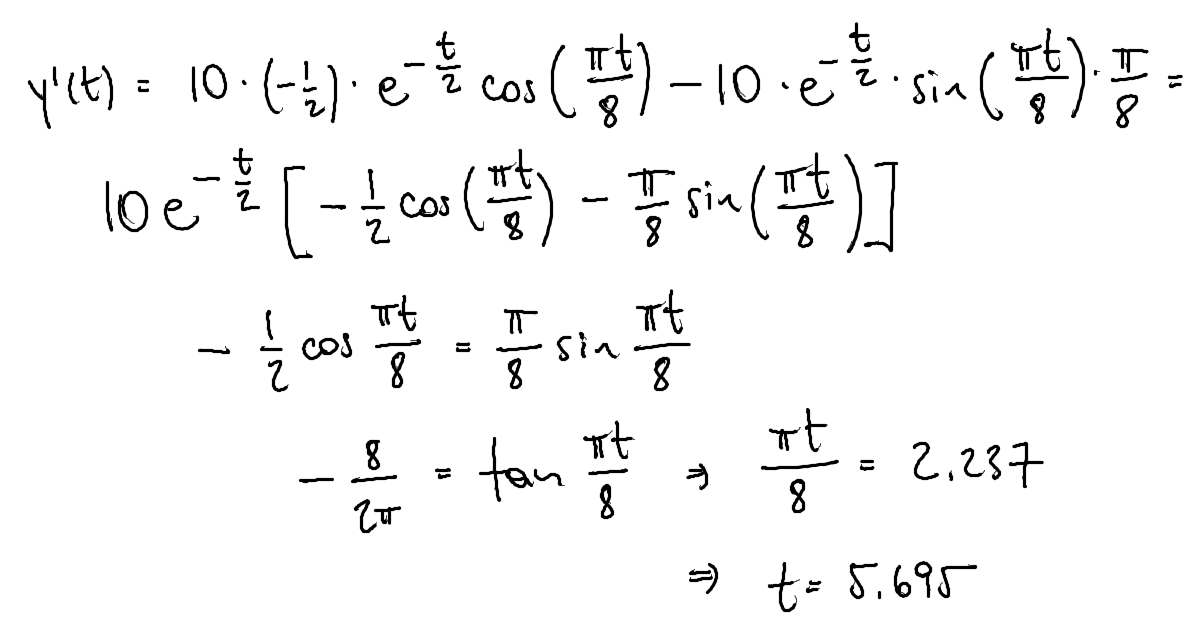 y'(t) = 10 · (-1/2) · e^(-t/2) cos(πt/8) - 10 · e^(-t/2) · sin(πt/8) · π/8 =
10e^(-t/2) [ -1/2 cos(πt/8) - π/8 sin(πt/8) ]
- 1/2 cos πt/8 = π/8 sin πt/8
- 8/2π = tan πt/8 ⇒ πt/8 = 2.237
⇒ t = 5.695